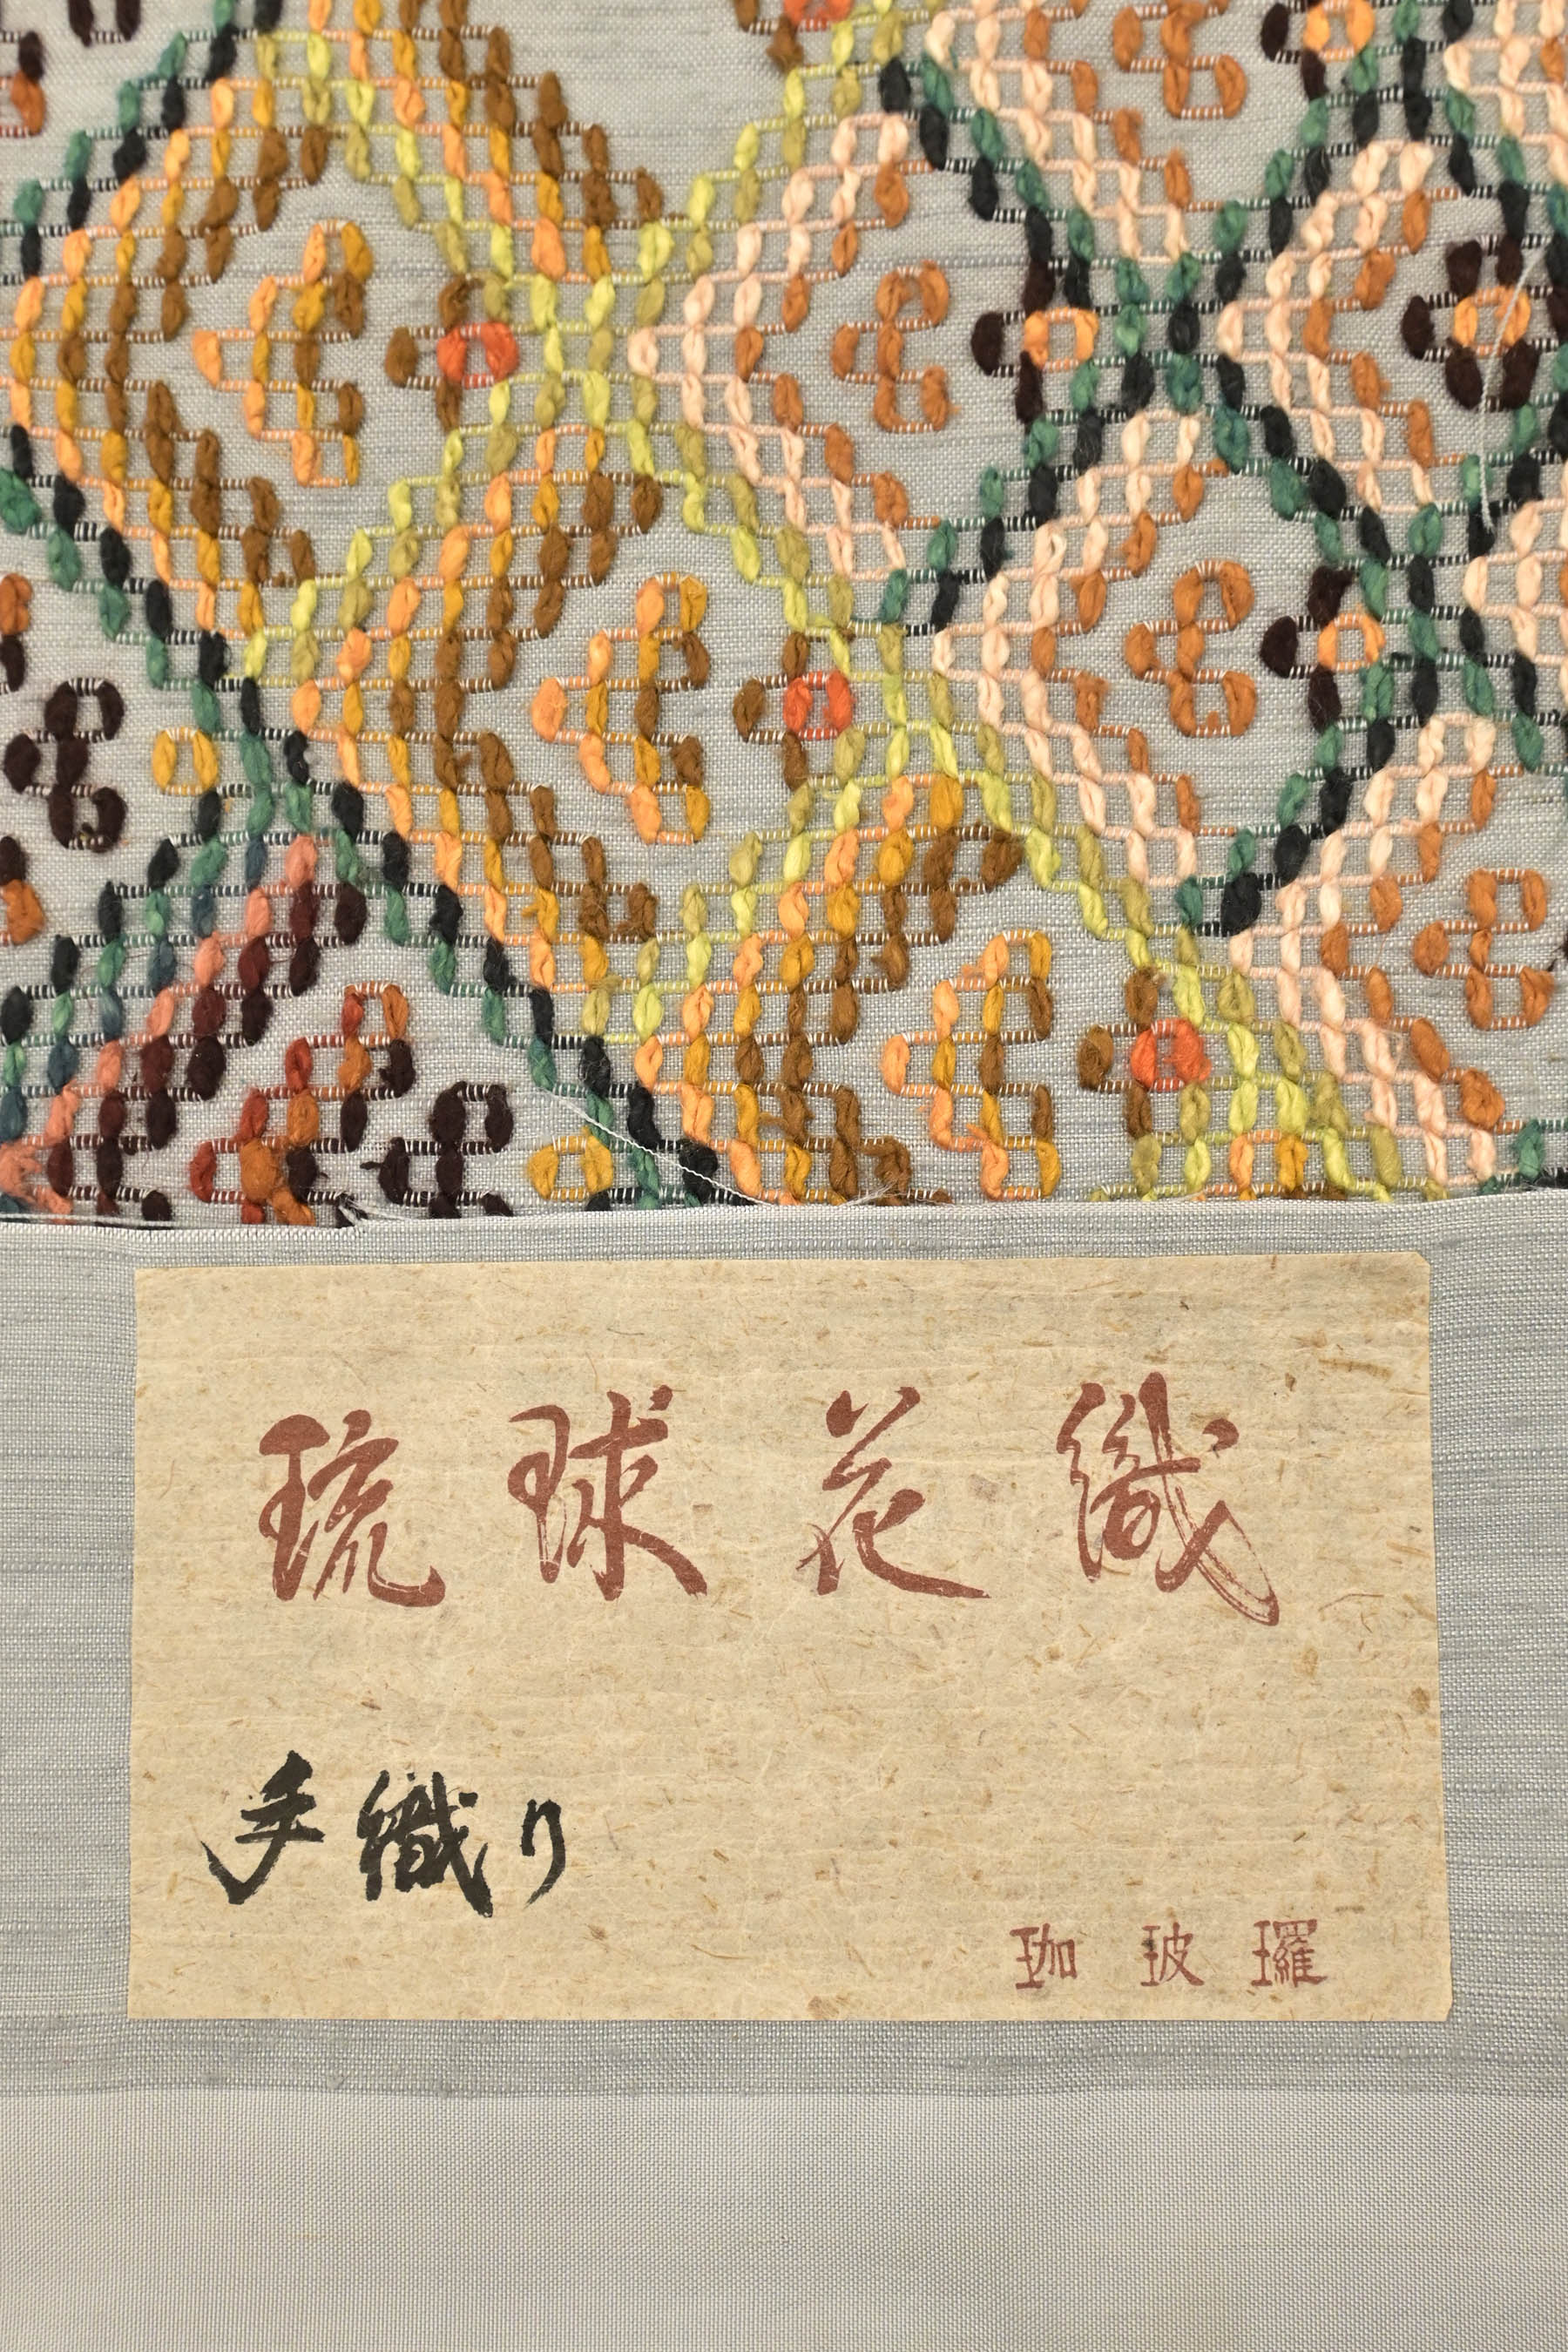 琉球花織
手織り
珈玻瓎